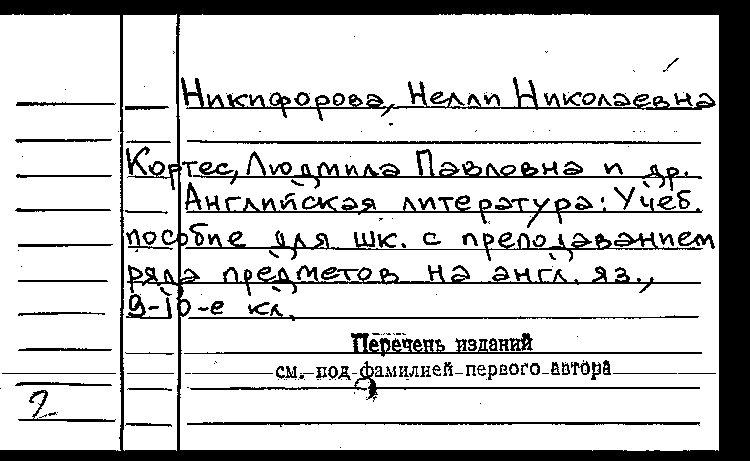 Никифорова, Нелли Николаевна
Кортес, Людмила Павловна и др.
Английская литература: Учеб.
пособие для шк. с преподаванием
ряда предметов на англ. яз.,
9-10-е кл.
Перечень изданий
см. под фамилией первого автора
2